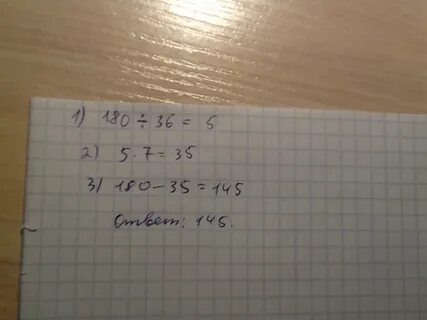 1) 180 ÷ 36 = 5
2) 5 · 7 = 35
3) 180 - 35 = 145
Ответ: 145.